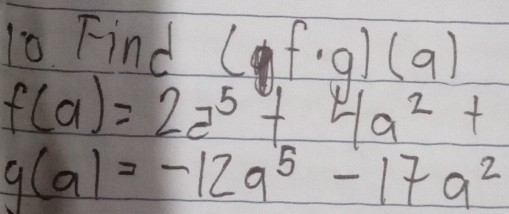 10. Find (f·g)(a)
f(a) = 2a⁵ + 4a² +
g(a) = -12a⁵ - 17a²